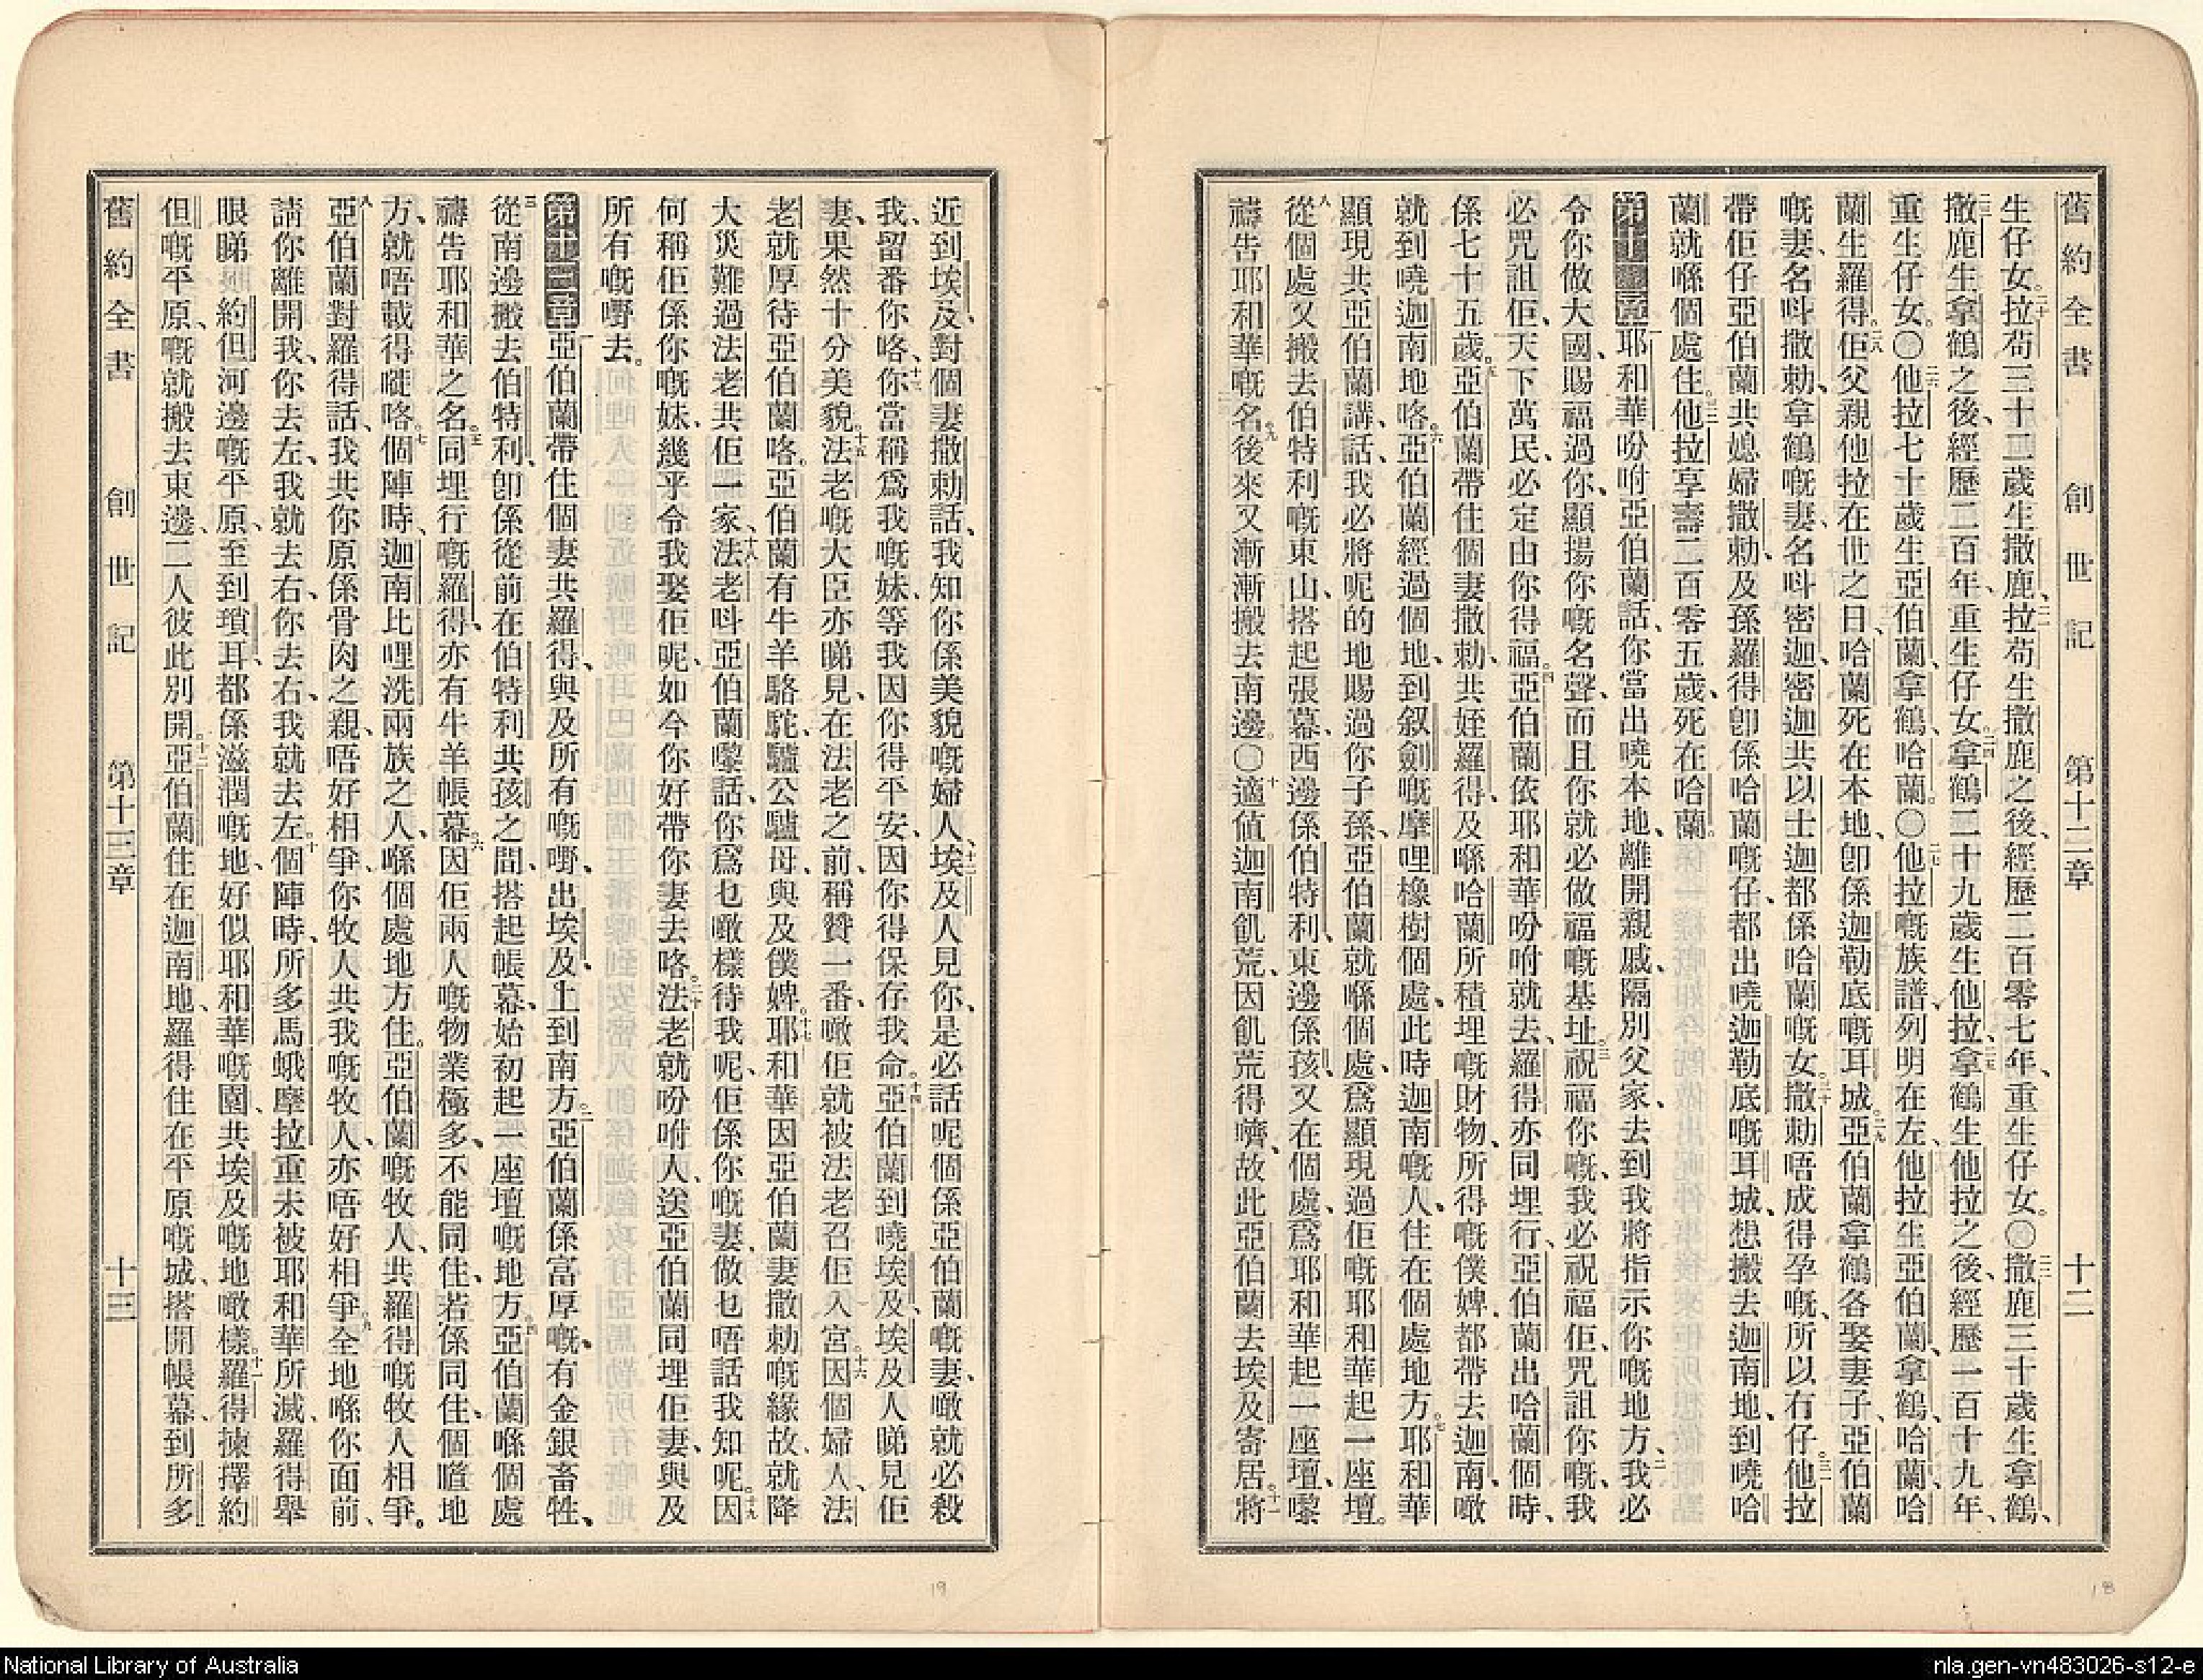 舊約全書 創世記 第十二章 十二
生仔女。二十拉苟三十二歲生撒鹿、二一拉苟生撒鹿之後、經歷二百零七年、重生仔女。〇二二撒鹿三十歲生拿鶴、
二三撒鹿生拿鶴之後、經歷二百年、重生仔女。二四拿鶴二十九歲生他拉、二五拿鶴生他拉之後、經歷一百十九年、
重生仔女。〇二六他拉七十歲生亞伯蘭、拿鶴、哈蘭。〇二七他拉嘅族譜列明在左、他拉生亞伯蘭、拿鶴、哈蘭、哈
蘭生羅得。二八佢父親他拉在世之日、哈蘭死在本地、卽係迦勒底嘅耳城。二九亞伯蘭拿鶴各娶妻子、亞伯蘭
嘅妻、名呌撒勅、拿鶴嘅妻、名呌密迦、密迦共以士迦都係哈蘭嘅女。三十撒勅唔成得孕嘅、所以冇仔。三一他拉
帶佢仔亞伯蘭共媳婦撒勅、及孫羅得卽係哈蘭嘅仔、都出嘵迦勒底嘅耳城、想搬去迦南地、到嘵哈
蘭就喺個處住。三二他拉享壽二百零五歲、死在哈蘭。
第十二章一耶和華吩咐亞伯蘭話、你當出嘵本地、離開親戚、隔別父家、去到我將指示你嘅地方、二我必
令你做大國、賜福過你、顯揚你嘅名聲、而且你就必做福嘅基址。三祝福你嘅、我必祝福佢、咒詛你嘅、我
必咒詛佢、天下萬民、必定由你得福。四亞伯蘭依耶和華吩咐就去、羅得亦同埋行、亞伯蘭出哈蘭個時、
係七十五歲。五亞伯蘭帶住個妻撒勅、共姪羅得、及喺哈蘭所積埋嘅財物、所得嘅僕婢、都帶去迦南、噉
就到嘵迦南地咯。六亞伯蘭經過個地、到叙劍嘅摩哩橡樹個處、此時迦南嘅人、住在個處地方。七耶和華
顯現共亞伯蘭講話、我必將呢的地賜過你子孫、亞伯蘭就喺個處、爲顯現過佢嘅耶和華起一座壇。
八從個處又搬去伯特利嘅東山、搭起張幕、西邊係伯特利、東邊係孩、又在個處、爲耶和華起一座壇、嚟
禱告耶和華嘅名。九後來又漸漸搬去南邊。〇十適值迦南飢荒、因飢荒得嚌、故此亞伯蘭去埃及寄居。十一將
近到埃及、對個妻撒勅話、我知你係美貌嘅婦人、十二埃及人見你、是必話呢個係亞伯蘭嘅妻、噉就必殺
我、留番你咯、十三你當稱爲我嘅妹、等我因你得平安、因你得保存我命。十四亞伯蘭到嘵埃及、埃及人睇見佢
妻、果然十分美貌。十五法老嘅大臣亦睇見、在法老之前、稱贊一番、噉佢就被法老召佢入宮。十六因個婦人、法
老就厚待亞伯蘭咯。亞伯蘭有牛羊駱駝、驢公驢母、與及僕婢。十七耶和華因亞伯蘭妻撒勅嘅緣故、就降
大災難過法老共佢一家、十八法老呌亞伯蘭嚟話、你爲乜噉樣待我呢、佢係你嘅妻、做乜唔話我知呢。十九因
何稱佢係你嘅妹、幾乎令我娶佢呢、如今你好帶你妻去咯。二十法老就吩咐人、送亞伯蘭同埋佢妻、與及
所有嘅嘢去。
第十三章一亞伯蘭帶住個妻共羅得、與及所有嘅嘢、出埃及、上到南方。二亞伯蘭係富厚嘅、有金銀畜牲、
三從南邊搬去伯特利、卽係從前在伯特利共孩之間、搭起帳幕、始初起一座壇嘅地方。四亞伯蘭喺個處
禱告耶和華之名。五同埋行嘅羅得、亦有牛羊帳幕。六因佢兩人嘅物業極多、不能同住、若係同住、個笪地
方、就唔載得嚡咯。七個陣時、迦南比哩洗兩族之人、喺個處地方住。亞伯蘭嘅牧人、共羅得嘅牧人相爭。
八亞伯蘭對羅得話、我共你原係骨肉之親、唔好相爭、你牧人共我嘅牧人、亦唔好相爭。九全地喺你面前、
請你離開我、你去左、我就去右、你去右、我就去左。十個陣時、所多馬蛾摩拉重未被耶和華所滅、羅得舉
眼睇見約但河邊嘅平原、至到瑣耳、都係滋潤嘅地、好似耶和華嘅園、共埃及嘅地噉樣。十一羅得揀擇約
但嘅平原、嘅就搬去東邊、二人彼此別開。十二亞伯蘭住在迦南地、羅得住在平原嘅城、搭開帳幕、到所多
舊約全書 創世記 第十三章 十三
19
18
National Library of Australia
nla.gen-vn483026-s12-e